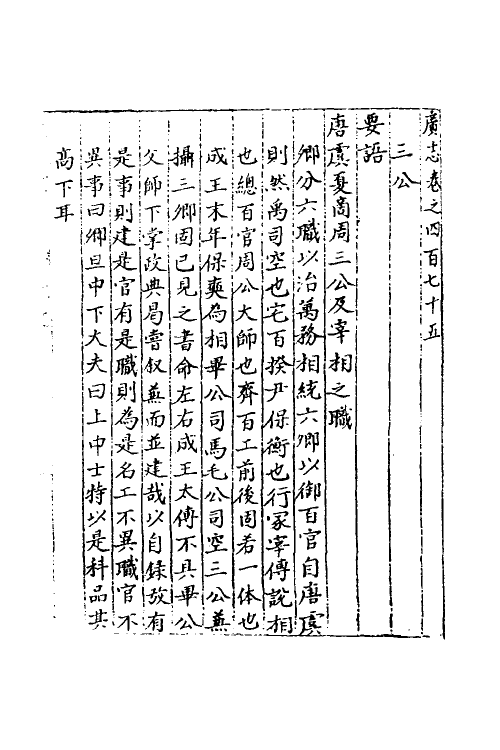 廣志卷之四百七十五
三公
要語
唐虞夏商周三公及宰相之職
卿分六職以治萬務相統六卿以御百官自唐虞
則然禹司空也宅百揆尹保衡也行冡宰傅說相
也總百官周公大師也齊百工前後固若一体也
成王末年保奭為相畢公司馬毛公司空三公兼
攝三卿固已見之書命左右成王太傅不具畢公
父師下掌政典曷嘗叙兼而並建哉以自錄攷有
是事則建是官有是職則為是名工不異職官不
異事曰卿且中下大夫曰上中士特以是科品其
高下耳